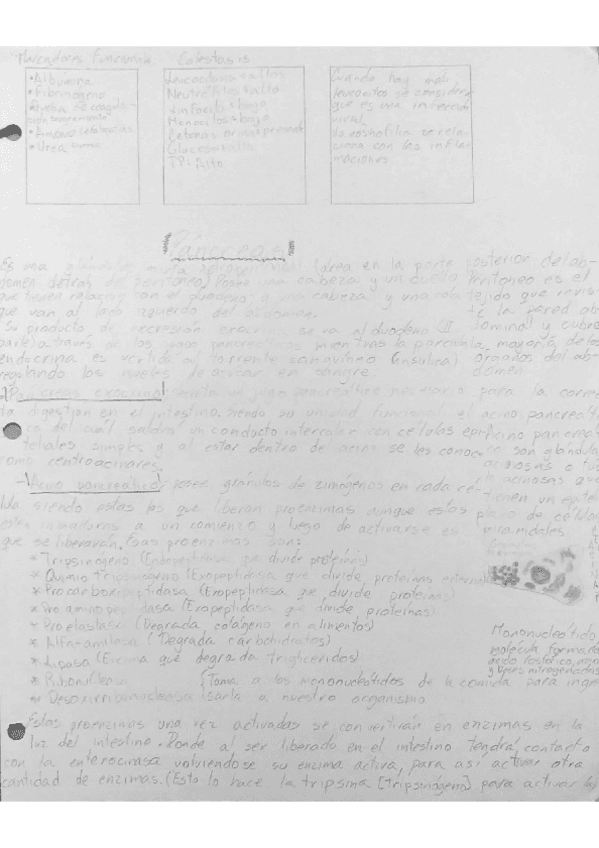 Marcadores Funcionales
Colestasis
• Albumina
• Fibrinogeno
• Urea
Leucocitos: altos
Neutrófilos: alto
Linfocitos: bajo
Monocitos: bajo
Cetonas orina: presente
Glucosa: alta
TP: Alto
Cuando hay
leucocitos se considera
que es una infección
viral.
La eosinofilia se rela-
ciona con las infla-
maciones
Páncreas
Es una glándula mixta retroperitoneal (área en la parte posterior del ab-
domen detrás de peritoneo) Posee una cabeza y un cuello
que tienen relación con el duodeno y una cabeza y una cola
que van al lado izquierdo del abdomen.
Peritoneo es el
tejido que revis-
te la pared ab
dominal y cubre
mayoría de los
órganos del ab-
domen
Su producto de secresión exocrina se va al duodeno (II
parte) a través de los vasos pancreáticos mientras la porción
endocrina es vertida al torrente sanguíneo (insulina)
regulando los niveles de azúcar en sangre.
Páncreas exocrino: un jugo pancreático necesario para la correc
ta digestión en el intestino, siendo su unidad funcional el acino pancreáti
co del cuál saldrá un conducto intercalar con células epi
teliales simples y al estar dentro de acino se les conoce
como centroacinares.
Acino pancreá
co son glándulas
acinosas o tu
lo acinosas que
tienen un epite
piramidales
Acino pancreático: posee gránulos de zimógenos en cada cé-
lula siendo estas las que liberan proenzimas aunque estas
están inmaduras a un comienzo y luego de activarse es
que se liberarán. Esas proenzimas son:
* Tripsinógeno (Endopeptidasa que divide proteínas)
* Quimio tripsinógeno (Exopeptidasa que divide proteínas
* Procarboxipeptidasa (Exopeptidasa que divide proteínas)
* Pro aminopeptidasa (Exopeptidasa que divide proteínas)
* Pro elastasa (Degrada colágeno en alimentos)
* Alfa-amilasa (Degrada carbohidratos)
* Lipasa (Enzima que degrada triglicéridos)
* Ribonucleasa (Toma a los mononucleótidos de la comida para
* Desoxirribonucleasa a nuestro organismo
Mononucleótido
molécula formada
ácido fosfórico,
y bases nitrogenadas
Estas proenzimas una vez activadas se convertirán en enzimas en la
luz del intestino. Donde al ser liberado en el intestino tendrá contacto
con la enterocinasa volviendose su enzima activa, para así activar otra
cantidad de enzimas. (Esto lo hace la tripsina [tripsinógeno] para activar